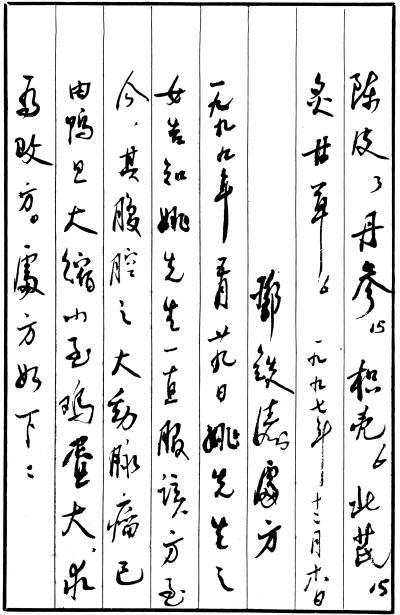 陈皮3 丹参15 枳壳6 北芪15
炙甘草6 一九九七年十二月
鄧鉄涛處方
一九九九年五月廿九日姚先生之
女告知姚先生一直服该方至
今，其腹腔之大动脉瘤已
由鸭旦大缩小至鸡蛋大，求
改方。處方如下：